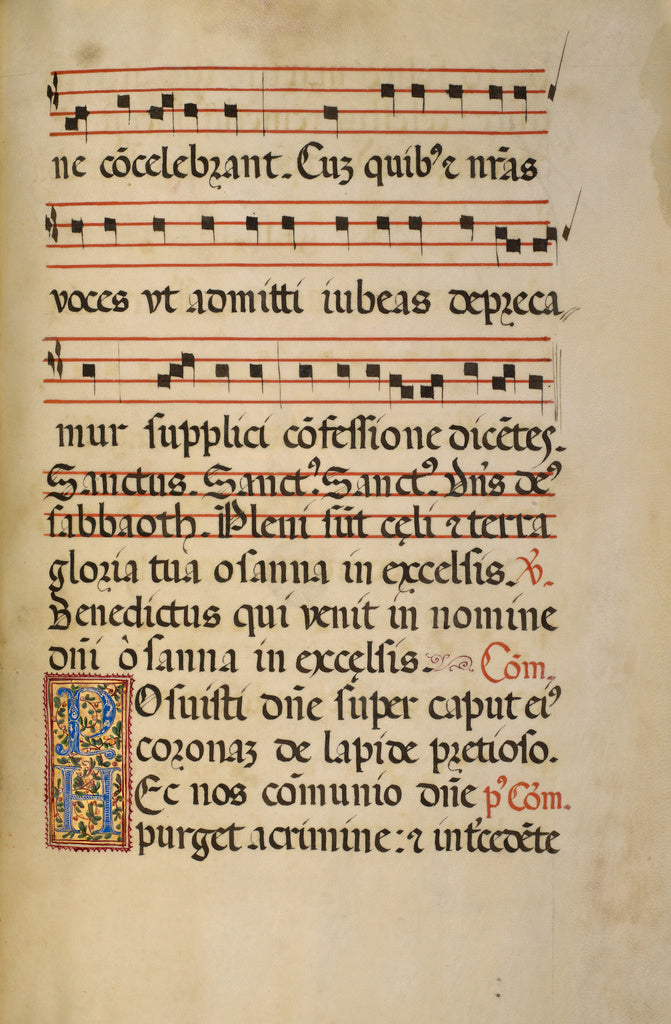 ne cōcelebꝛant. Cuꝫ quibꝰ ⁊ nr̄as
voces vt admitti iubeas depꝛeca
mur supplici cōfessione dicētes.
Sanctus. Sanctꝰ. Sanctꝰ. Dn̄s deꝰ
sabbaoth. Pleni sūt cęli ⁊ terra
gloꝛia tua osanna in excelsis. ℣.
Benedictus qui venit in nomine
dn̄i ò sanna in excęlsis. Cōm.
POsuisti dn̄e super caput eiꝰ
coꝛonaꝫ de lapide pꝛetioso.
HEc nos cōmunio dn̄e pꝰ Cōm.
purget a crimine: ⁊ int̄cedēte